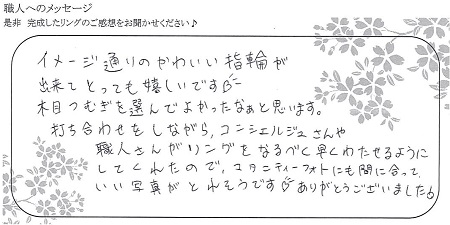 職人へのメッセージ
是非 完成したリングのご感想をお聞かせください♪
イメージ通りのかわいい指輪が
出来てとっても嬉しいです
木目つむぎを選んでよかったなぁと思います。
打ち合わせをしながら、コンシェルジュさんや
職人さんがリングをなるべく早くわたせるように
してくれたので、マタニティーフォトにも間に合って、
いい写真がとれそうです ありがとうございました